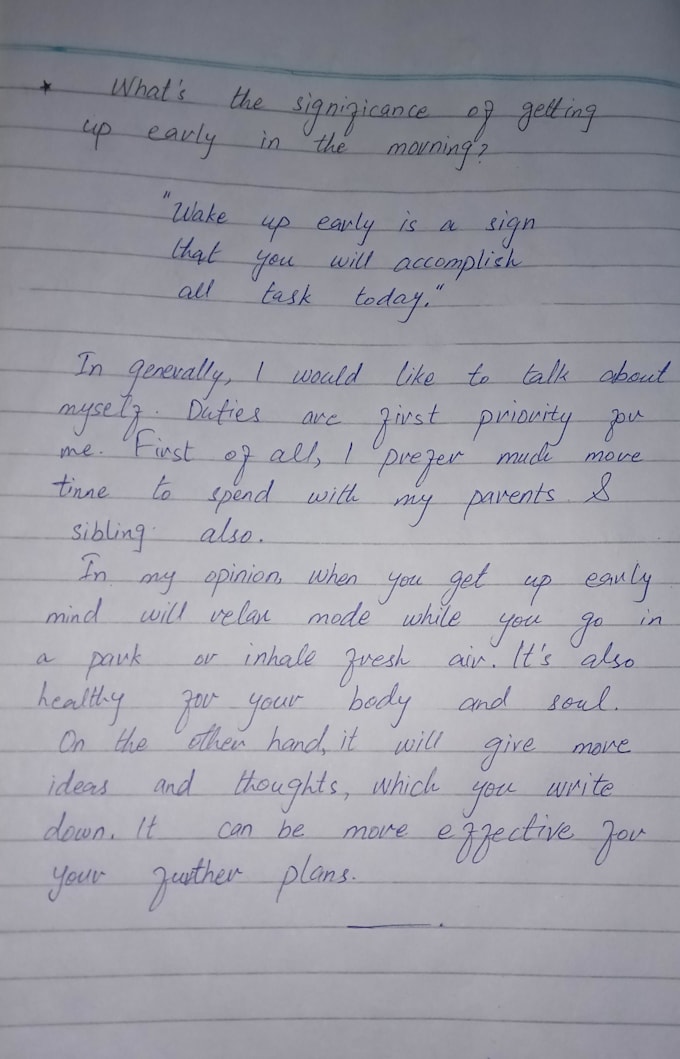 * What's the significance of getting
up early in the morning?
"Wake up early is a sign
that you will accomplish
all task today."
In generally, I would like to talk about
myself. Duties are first priority for
me. First of all, I prefer much more
time to spend with my parents &
sibling also.
In my opinion, when you get up early
mind will relax mode while you go in
a park or inhale fresh air. It's also
healthy for your body and soul.
On the other hand, it will give more
ideas and thoughts, which you write
down. It can be more effective for
your further plans.